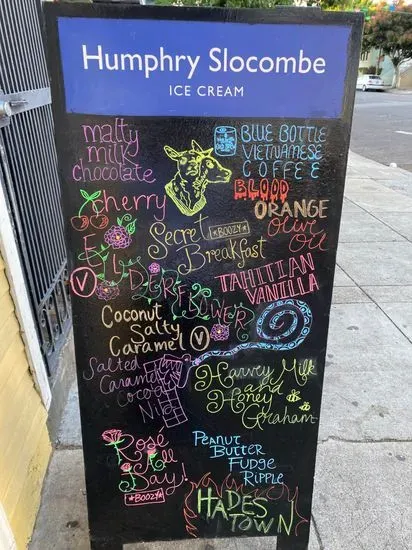 Humphry Slocombe
ICE CREAM
malty
milk
chocolate
BLUE BOTTLE
VIETNAMESE
COFFEE
cherry
BLOOD
ORANGE
olive
oil
Secret
BOOZY
Breakfast
V
ELDERFLOWER
TAHITIAN
VANILLA
Coconut
Salty
Caramel V
Salted
Caramel
Cocoa
Nib
Harvey Milk
and
Honey
Graham
Rosé
All
Day!
BOOZY
Peanut
Butter
Fudge
Ripple
HADES
TOWN